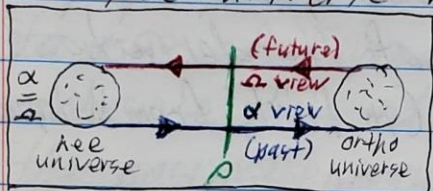 (future)
Ω view
α view
(past)
Ω ≡ α
universe
ortho
universe